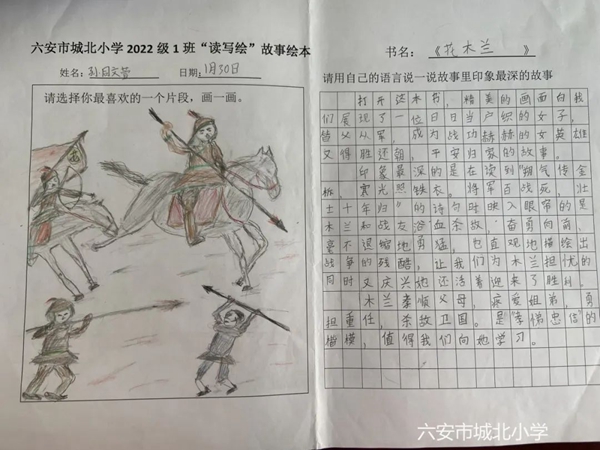 六安市城北小学2022级1班“读写绘”故事绘本
姓名：
日期：1月30日
请选择你最喜欢的一个片段，画一画。
书名：《花木兰》
请用自己的语言说一说故事里印象最深的故事
打开这本书，精美的画面向我
们展现了一位日日当户织的女子，
替父从军，成为战功赫赫的女英雄
又得胜还朝，平安归家的故事。
印象最深的是在读到“朔气传金
柝，寒光照铁衣。将军百战死，壮
士十年归”的诗句时映入眼帘的是
木兰和战友浴血杀敌，奋勇向前、
毫不退缩地勇猛，也直观地描绘出
战争的残酷，让我们为木兰担忧的
同时又庆兴她还活着迎来了胜利。
木兰孝顺父母，疼爱姐弟，勇
担重任，杀敌卫国。是“孝悌忠信”的
楷模，值得我们向她学习。
六安市城北小学